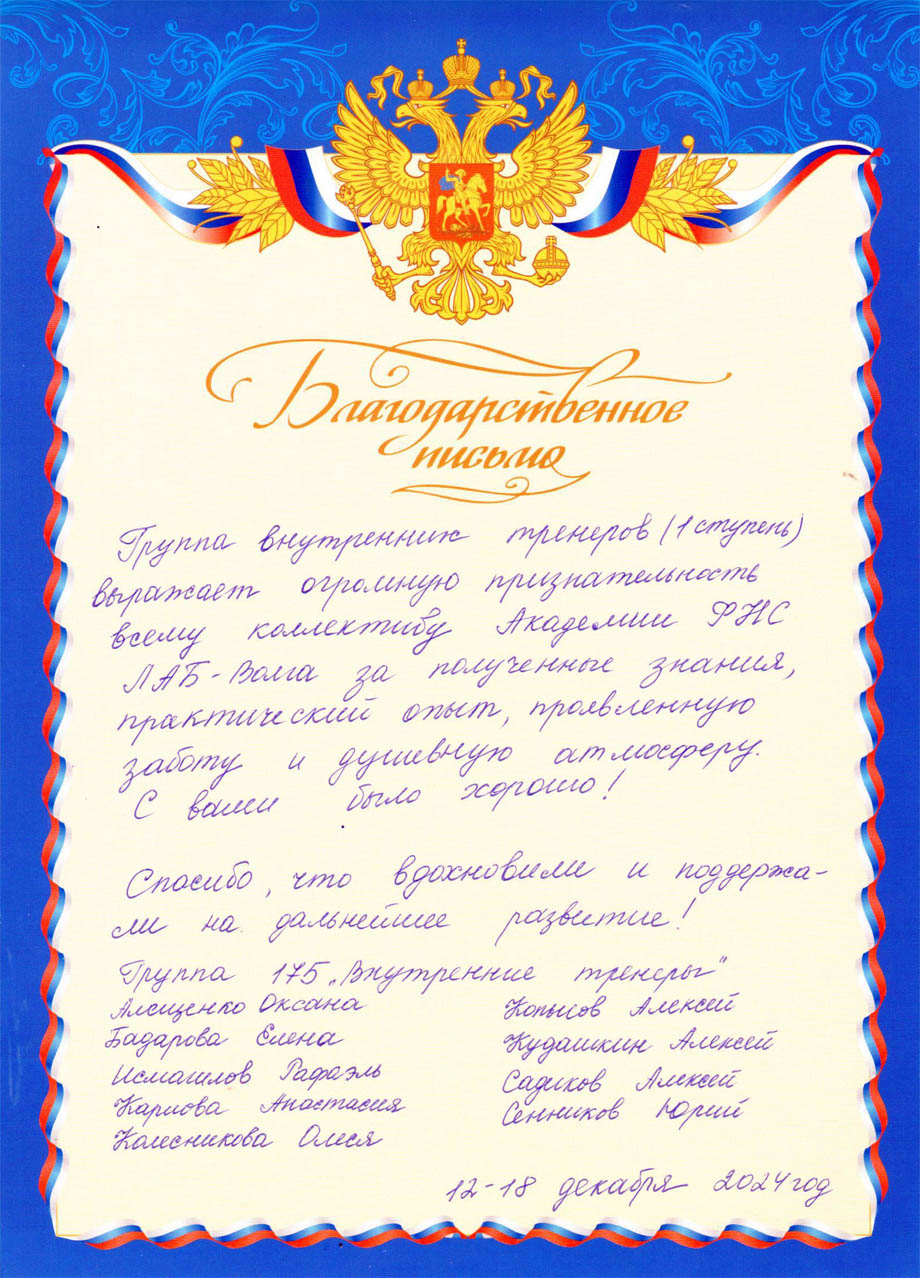 Благодарственное
письмо
Группа внутренних тренеров (1 ступень)
выражает огромную признательность
всему коллективу Академии ФНС
ЛАБ-Волга за полученные знания,
практический опыт, проявленную
заботу и душевную атмосферу.
С вами было хорошо!
Спасибо, что вдохновили и поддержа-
ли на дальнейшее развитие!
Группа 175 „Внутренние тренеры"
Алещенко Оксана
Бадарова Елена
Исмагилов Рафаэль
Карпова Анастасия
Колесникова Олеся
Копысов Алексей
Кудашкин Алексей
Садиков Алексей
Сенников Юрий
12-18 декабря 2024 год